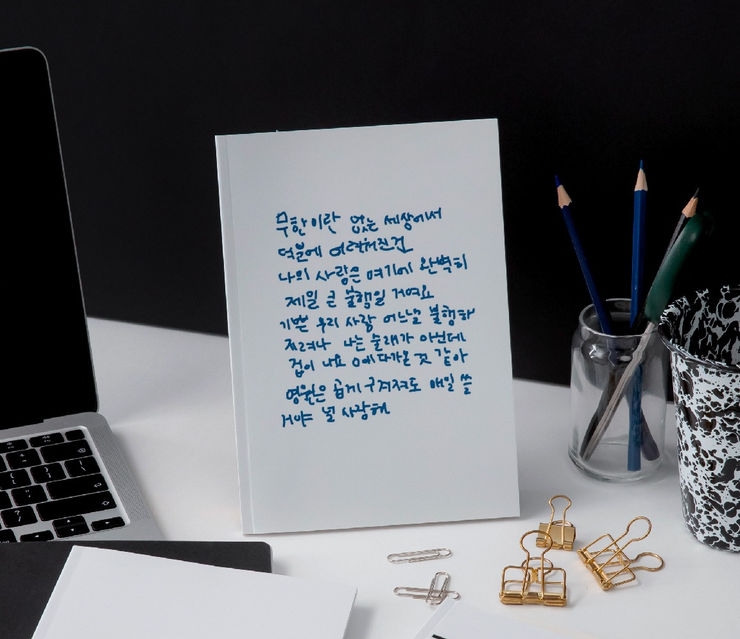 무한이란 없는 세상에서
덕분에 어려워진건
나의 사랑은 여기에 완벽히
제일 큰 불행일 거예요
기쁜 우리 사랑 어느날 불행하
지려나 나는 술래가 아닌데
겁이 나요 0에 다가온 것 같아
영원은 곱게 구겨져도 매일 쓸
거야 널 사랑해